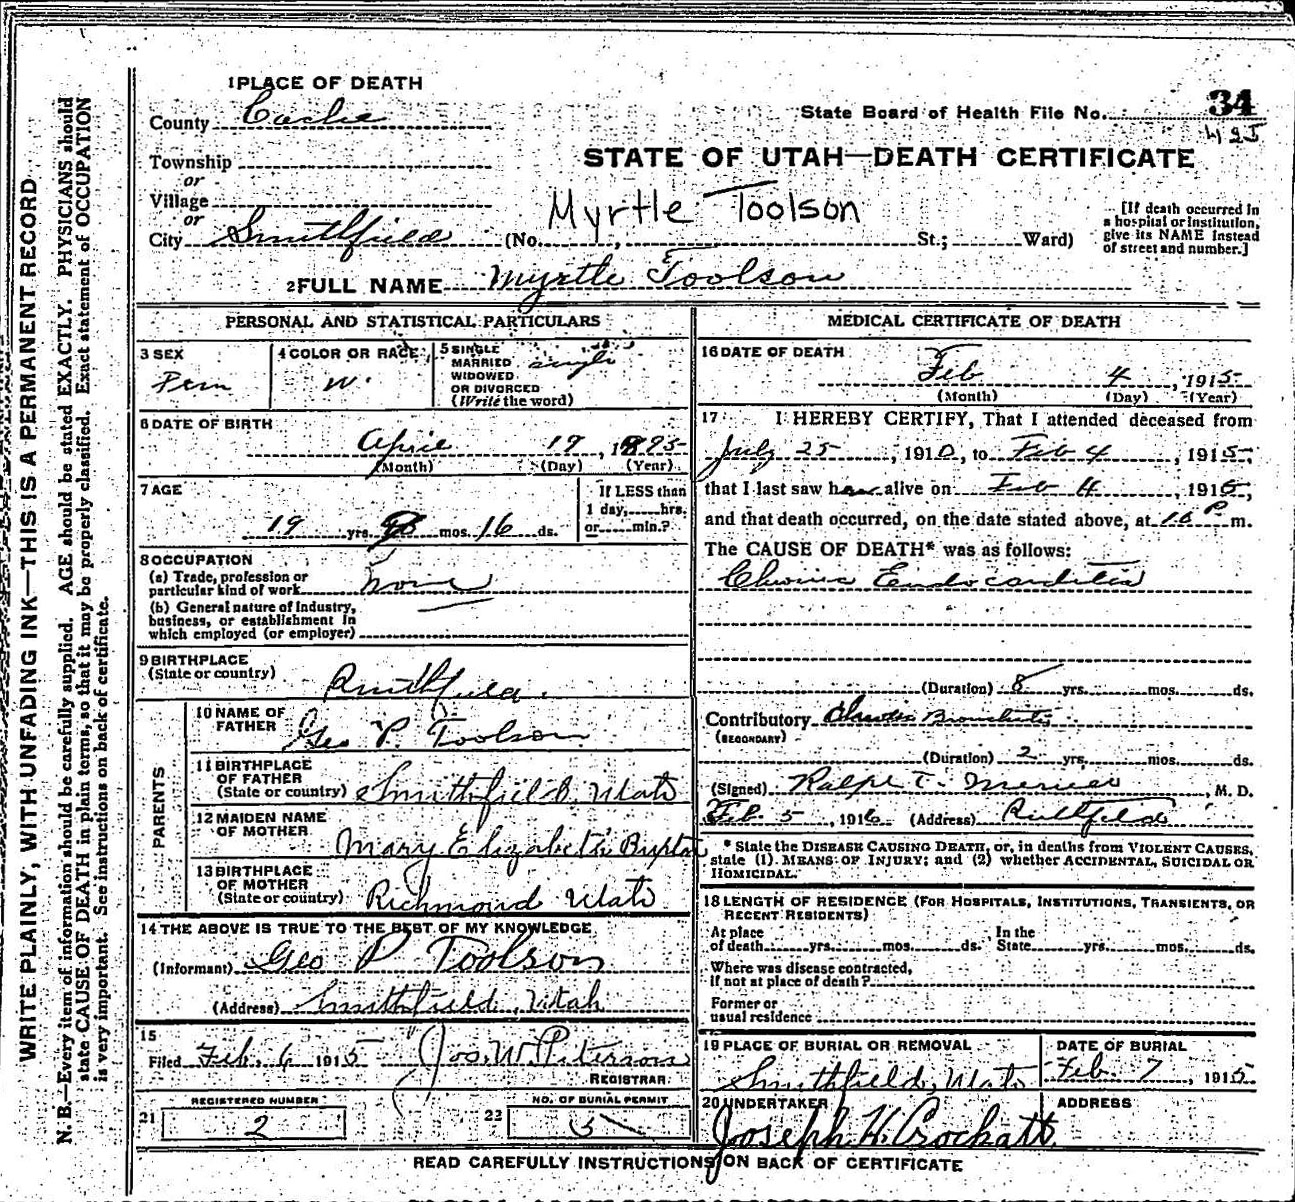 1 PLACE OF DEATH
County Cache
State Board of Health File No. 34
425
STATE OF UTAH—DEATH CERTIFICATE
Township
or
Village
or
City Smithfield (No. , St.; Ward)
Myrtle Toolson
[If death occurred in
a hospital or institution,
give its NAME instead
of street and number.]
2 FULL NAME Myrtle Toolson
PERSONAL AND STATISTICAL PARTICULARS
3 SEX
Fem
4 COLOR OR RACE
W.
5 SINGLE
MARRIED
WIDOWED
OR DIVORCED
(Write the word)
single
6 DATE OF BIRTH
April 19, 1895
(Month) (Day) (Year)
7 AGE
19 yrs. mos. 16 ds.
If LESS than
1 day, hrs.
or min.?
8 OCCUPATION
(a) Trade, profession or
particular kind of work none
(b) General nature of Industry,
business, or establishment in
which employed (or employer)
9 BIRTHPLACE
(State or country)
Smithfield.
PARENTS
10 NAME OF
FATHER
Geo P. Toolson
11 BIRTHPLACE
OF FATHER
(State or country) Smithfield, Utah
12 MAIDEN NAME
OF MOTHER
Mary Elizabeth
13 BIRTHPLACE
OF MOTHER
(State or country) Richmond Utah
14 THE ABOVE IS TRUE TO THE BEST OF MY KNOWLEDGE
(Informant) Geo P Toolson
(Address) Smithfield, Utah
15
Filed Feb. 6 1915 Jos. W. Peterson
REGISTRAR
REGISTERED NUMBER
21 2
NO. OF BURIAL PERMIT
22 5
MEDICAL CERTIFICATE OF DEATH
16 DATE OF DEATH
Feb 4, 1915
(Month) (Day) (Year)
17 I HEREBY CERTIFY, That I attended deceased from
July 25, 1910, to Feb 4, 1915,
that I last saw her alive on Feb 4, 1915,
and that death occurred, on the date stated above, at P m.
The CAUSE OF DEATH* was as follows:
Chronic Endocarditis
(Duration) 8 yrs. mos. ds.
Contributory Chronic Bronchitis
(SECONDARY)
(Duration) 2 yrs. mos. ds.
(Signed) Ralph T. Merrill, M. D.
Feb. 5, 1916 (Address) Smithfield
* State the DISEASE CAUSING DEATH, or, in deaths from VIOLENT CAUSES,
state (1) MEANS OF INJURY; and (2) whether ACCIDENTAL, SUICIDAL OR
HOMICIDAL.
18 LENGTH OF RESIDENCE (FOR HOSPITALS, INSTITUTIONS, TRANSIENTS, OR
RECENT RESIDENTS)
At place
of death yrs. mos. ds.
In the
State yrs. mos. ds.
Where was disease contracted,
if not at place of death?
Former or
usual residence
19 PLACE OF BURIAL OR REMOVAL
Smithfield, Utah
DATE OF BURIAL
Feb. 7, 1915
20 UNDERTAKER
Joseph H. Crockatt
ADDRESS
READ CAREFULLY INSTRUCTIONS ON BACK OF CERTIFICATE
WRITE PLAINLY, WITH UNFADING INK—THIS IS A PERMANENT RECORD
N. B.—Every item of information should be carefully supplied. AGE should be stated EXACTLY. PHYSICIANS should
state CAUSE OF DEATH in plain terms, so that it may be properly classified. Exact statement of OCCUPATION
is very important. See instructions on back of certificate.